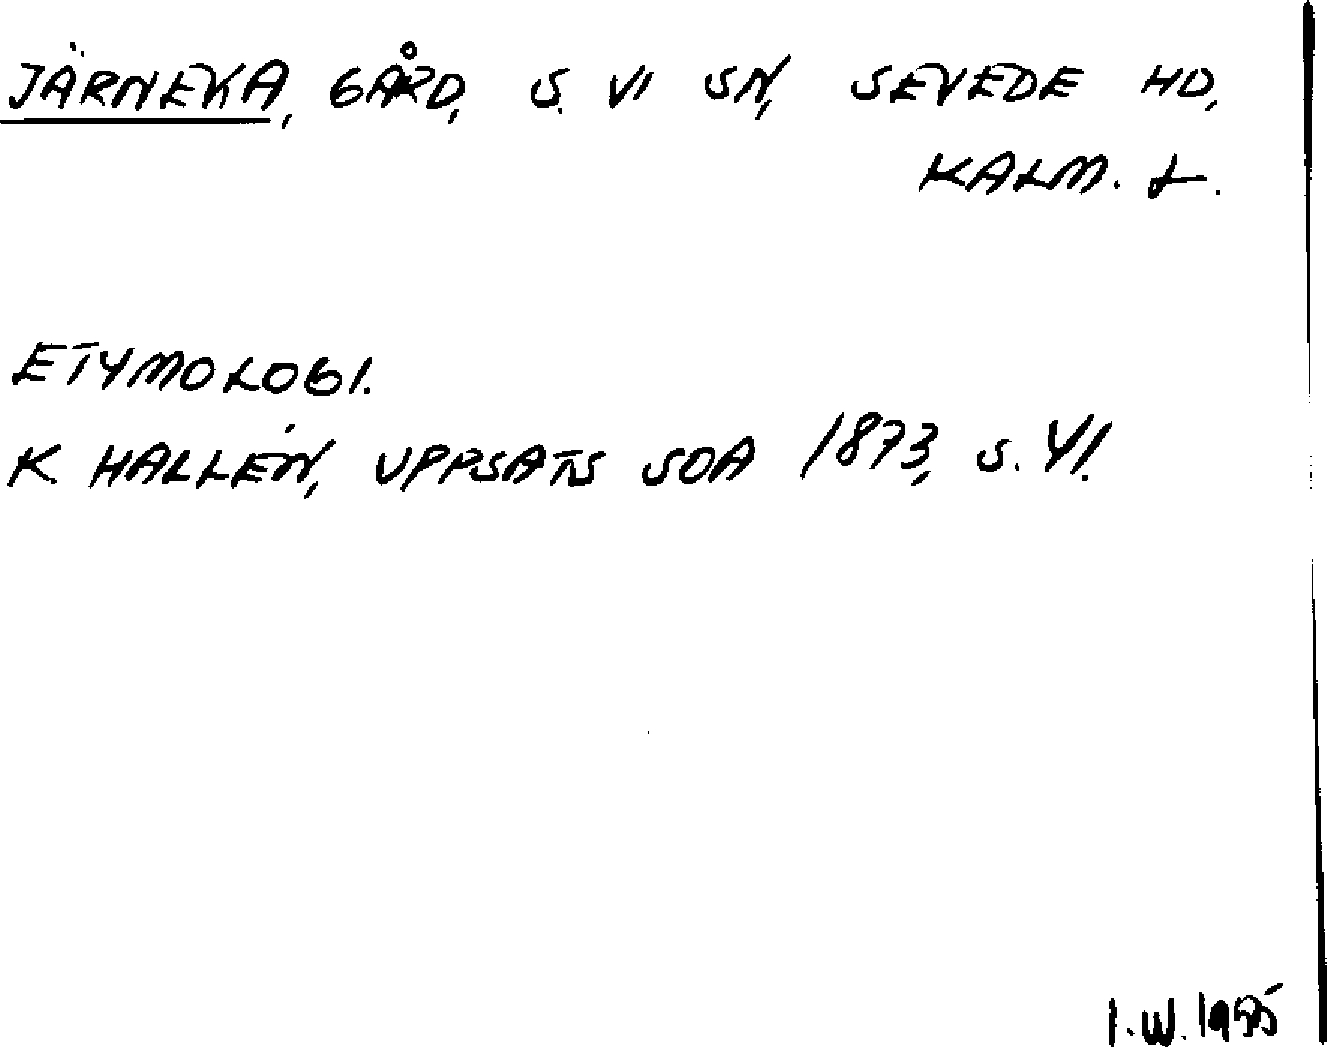 JÄRNEKA, GÅRD, S. VI SN, SEVEDE HD,
KALM. L.
ETYMOLOGI.
K HALLÉN, UPPSATS SOA 1873, S. VI.
I.W. 1955